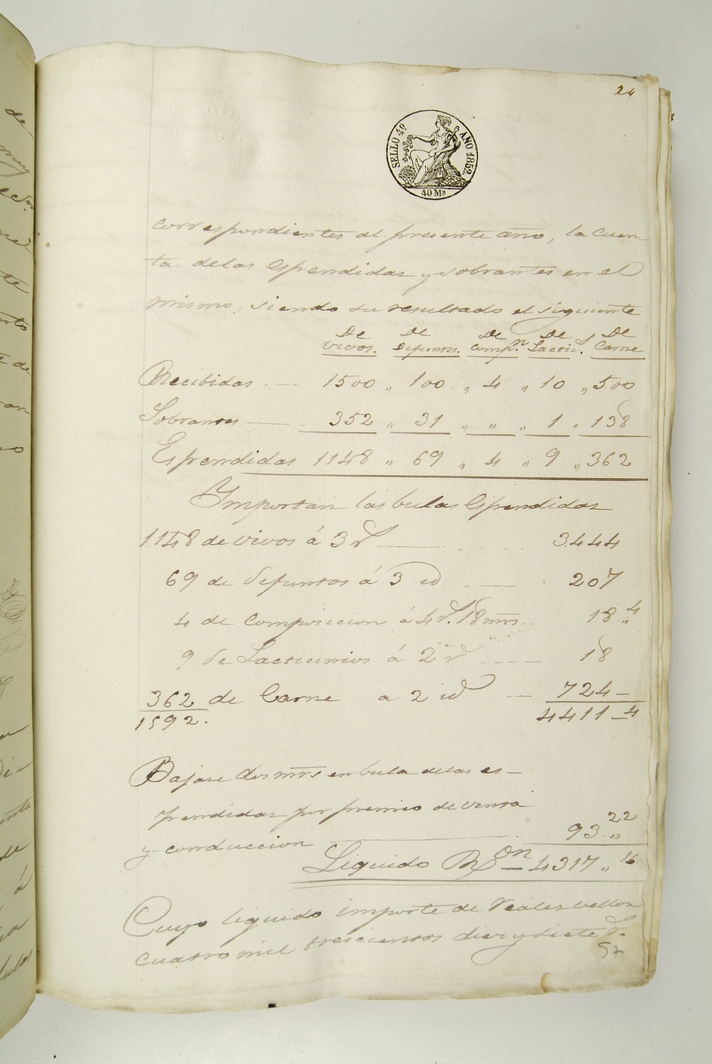 24
SELLO 4º AÑO 1852.
40 Ms
correspondientes al presente año, la cuen
ta de las Espendidas y sobrantes en el
mismo, siendo su resultado el siguiente
De vivos. De Difuntos. De Compn. De Lactic.s De Carne
Recibidas 1500 " 100 " 4 " 10 " 500
Sobrantes 352 " 31 " " " 1 " 138
Espendidas 1148 " 69 " 4 " 9 " 362
Importan las bulas Espendidas
1148 de vivos á 3 rs 3444
69 de Difuntos á 3 id 207
4 de Composicion á 4 rs. 18 mrs 18 " 4
9 de Lacticinios á 2 rs 18
362 de Carne a 2 id 724 –
1592. 4411 – 4
Bajase dos mrs en bula de las es–
pendidas por premio de venta
y conduccion 93 " 22
Liquido Rs on 4317 " 16
Cuyo liquido importe de reales vellon
cuatro mil trescientos diez y siete rs.
57